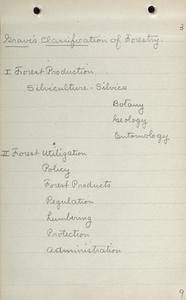 3
Graves Classification of Forestry.
I Forest Production
Silviculture - Silvics
Botany
Geology
Entomology
II Forest Utilization
Policy
Forest Products
Regulation
Lumbering
Protection
Administration
9